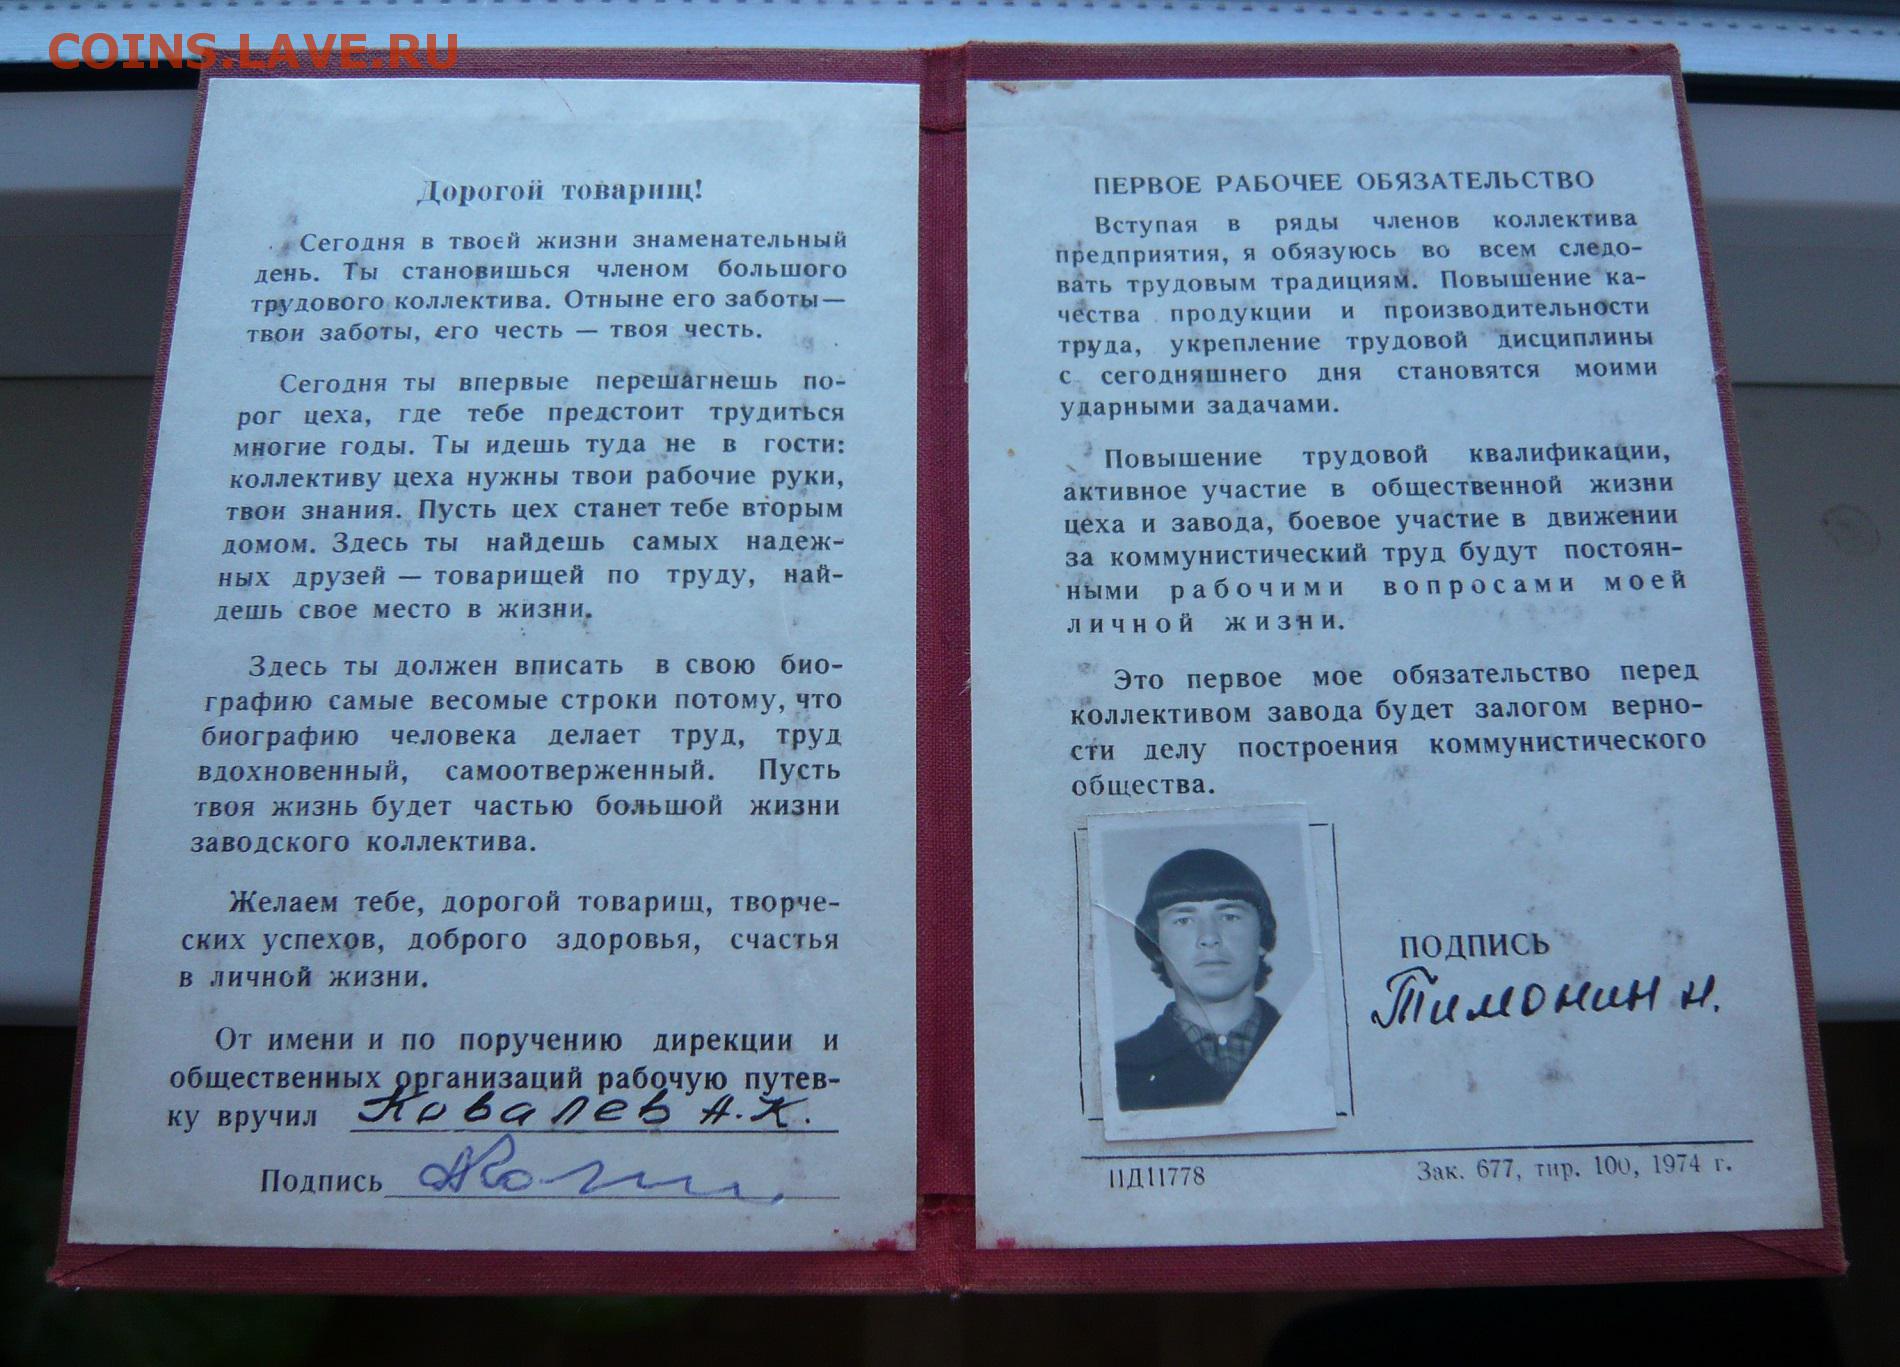 COINS.LAVE.RU
Дорогой товарищ!
Сегодня в твоей жизни знаменательный
день. Ты становишься членом большого
трудового коллектива. Отныне его заботы—
твои заботы, его честь — твоя честь.
Сегодня ты впервые перешагнешь по-
рог цеха, где тебе предстоит трудиться
многие годы. Ты идешь туда не в гости:
коллективу цеха нужны твои рабочие руки,
твои знания. Пусть цех станет тебе вторым
домом. Здесь ты найдешь самых надеж-
ных друзей — товарищей по труду, най-
дешь свое место в жизни.
Здесь ты должен вписать в свою био-
графию самые весомые строки потому, что
биографию человека делает труд, труд
вдохновенный, самоотверженный. Пусть
твоя жизнь будет частью большой жизни
заводского коллектива.
Желаем тебе, дорогой товарищ, творче-
ских успехов, доброго здоровья, счастья
в личной жизни.
От имени и по поручению дирекции и
общественных организаций рабочую путев-
ку вручил Ковалев А.К.
Подпись
ПЕРВОЕ РАБОЧЕЕ ОБЯЗАТЕЛЬСТВО
Вступая в ряды членов коллектива
предприятия, я обязуюсь во всем следо-
вать трудовым традициям. Повышение ка-
чества продукции и производительности
труда, укрепление трудовой дисциплины
с сегодняшнего дня становятся моими
ударными задачами.
Повышение трудовой квалификации,
активное участие в общественной жизни
цеха и завода, боевое участие в движении
за коммунистический труд будут постоян-
ными рабочими вопросами моей
личной жизни.
Это первое мое обязательство перед
коллективом завода будет залогом верно-
сти делу построения коммунистического
общества.
ПОДПИСЬ
Тимонин Н.
ПД11778
Зак. 677, тир. 100, 1974 г.